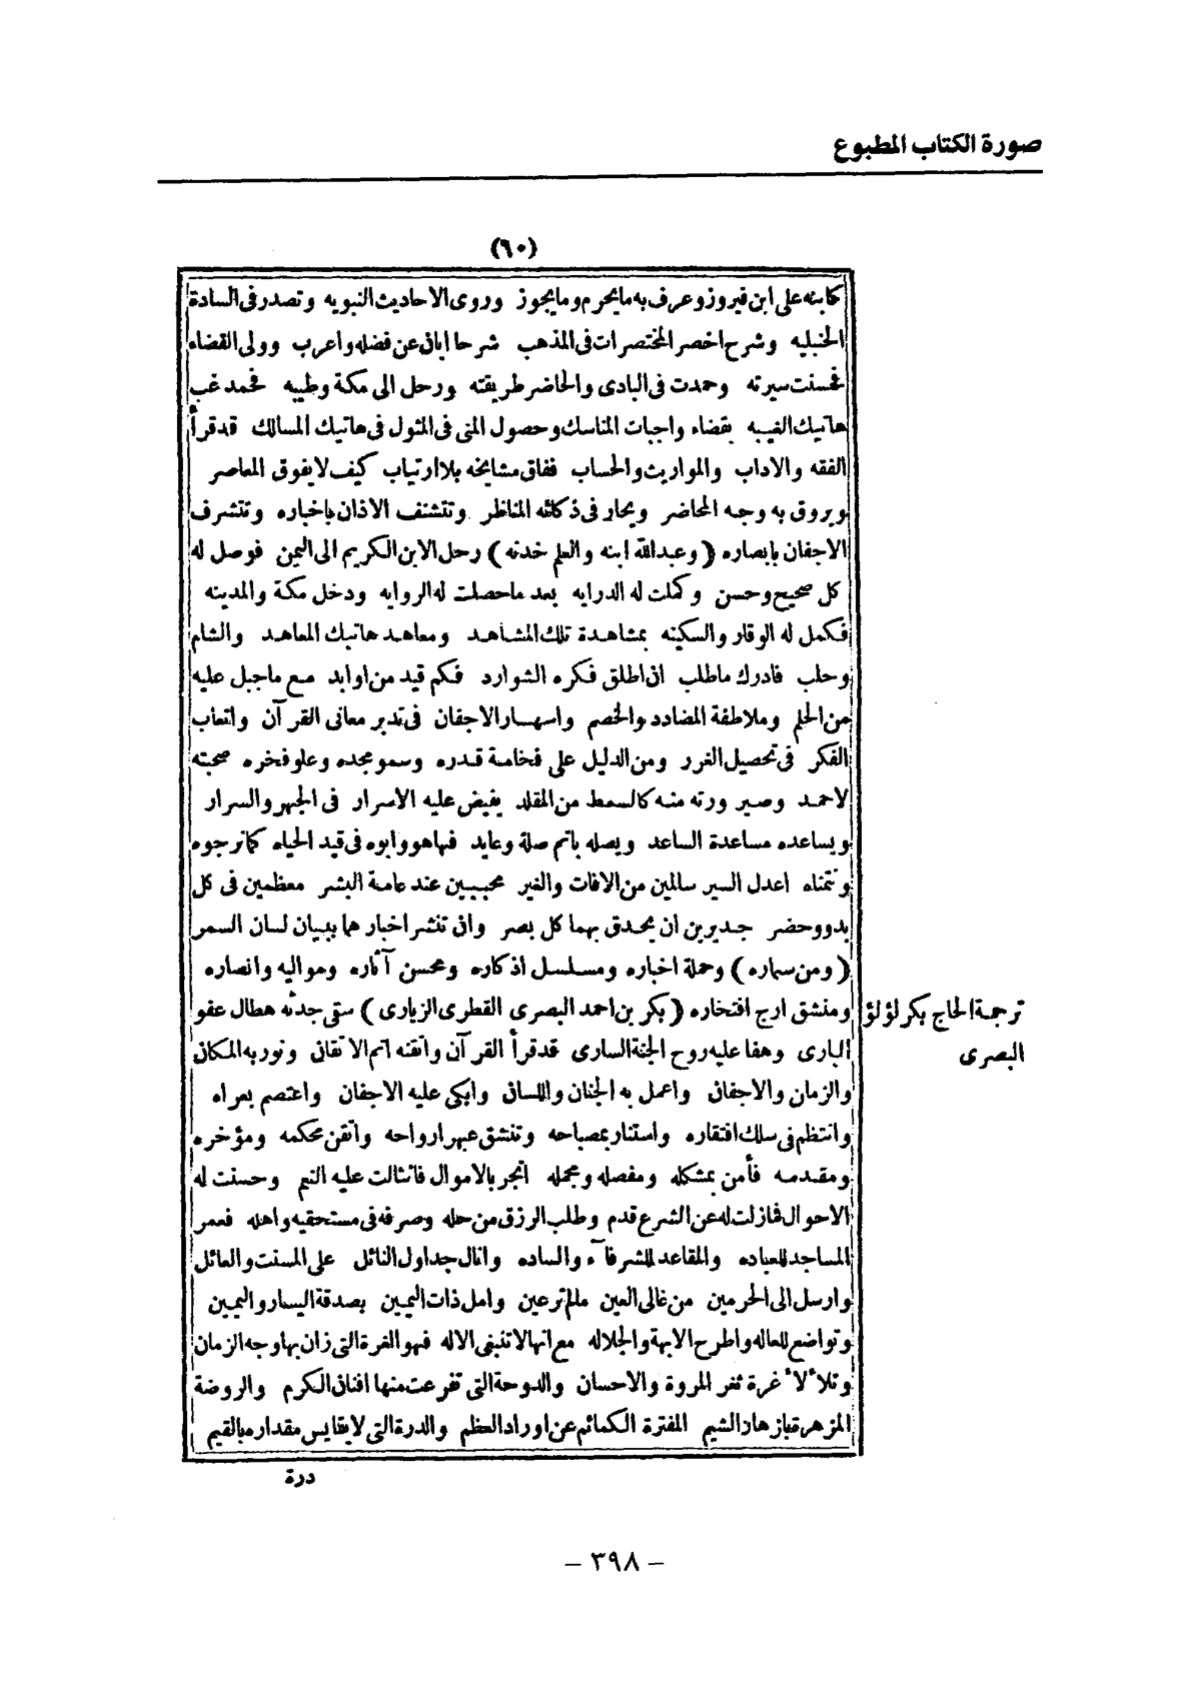 صورة الكتاب المطبوع
(٦٠)
كابنه على ابن فيروز وعرف به مايحرم ومايجوز وروى الاحاديث النبويه وتصدر فى السادة
الحنبليه وشرح اخصر المختصرات فى المذهب شرحا ابان عن فضله واعرب وولى القضاء
فحسنت سيرته وحمدت فى البادى والحاضر طريقته ورحل الى مكة وطيبه فحمد غب
هاتيك الغيبه بقضاء واجبات المناسك وحصول المنى فى المثول فى هاتيك المسالك قد قرأ
الفقه والاداب والمواريث والحساب ففاق مشايخه بلا ارتياب كيف لا يفوق المعاصر
ويروق به وجه المحاضر ويحار فى ذكائه المناظر وتتشنف الاذان باخباره وتتشرف
الاجفان بابصاره (وعبدالله ابنه والعلم خدنه) رحل الابن الكريم الى اليمن فوصل له
كل صحيح وحسن وكملت له الدرايه بعد ماحصلت له الروايه ودخل مكة والمدينه
فكمل له الوقار والسكينه بمشاهدة تلك المشاهد ومعاهد هاتيك المعاهد والشام
وحلب فادرك ماطلب ان اطلق فكره الشوارد فكم قيد من اوابد مع ماجبل عليه
من الحلم وملاطفة المضادد والخصم واسهار الاجفان فى تدبر معانى القرآن واتعاب
الفكر فى تحصيل الغرر ومن الدليل على فخامة قدره وسمو مجده وعلو فخره صحبته
لاحمد وصيرورته منه كالسمط من المقلد يفيض عليه الاسرار فى الجهر والسرار
ويساعده مساعدة الساعد ويصله باتم صلة وعايد فهاهو وابوه فى قيد الحياه كما ترجوه
وتتمناه اعدل السير سالمين من الافات والغير محببين عند عامة البشر معظمين فى كل
بدو وحضر جديرين ان يحدق بهما كل بصر وان تنشر اخبارهما ببيان لسان السمر
(ومن سماره) وحملة اخباره ومسلسل اذكاره ومحسن آثاره ومواليه وانصاره
ومنشق ارج افتخاره (بكر بن احمد البصرى القطرى الزيارى) سقى جدثه هطال عفو
ترجمة الحاج بكر لؤلؤ
البصرى
البارى وهفا عليه روح الجنة السارى قد قرأ القرآن واتقنه اتم الاتقان ونور به المكان
والزمان والاجفان واعمل به الجنان واللسان وابكى عليه الاجفان واعتصم بعراه
وانتظم فى سلك افتقاره واستنار بمصباحه وتنشق عبهر ارواحه واتقن محكمه ومؤخره
ومقدمه فأمن بمشكله ومفصله ومجمله اتجر بالاموال فانثالت عليه النعم وحسنت له
الاحوال فمازلت له عن الشرع قدم وطلب الرزق من حله وصرفه فى مستحقيه واهله فعمر
المساجد للعباده والمقاعد للشرفآء والساده وانال جداول النائل على المسنت والعائل
وارسل الى الحرمين من غالى العين مالم ترعين وامل ذات اليمين بصدقة اليسار واليمين
وتواضع للعاله واطرح الابهة والجلاله مع انها لا تنبغى الا له فهو الغرة التى زان بها وجه الزمان
وتلألأ غرة ثغر المروة والاحسان والدوحة التى تفرعت منها افنان الكرم والروضة
المزهرة بازهار الشيم المفترة الكمائم عن اوراد العظم والدرة التى لا يقايس مقداره بالقيم
درة
– ٣٩٨ –